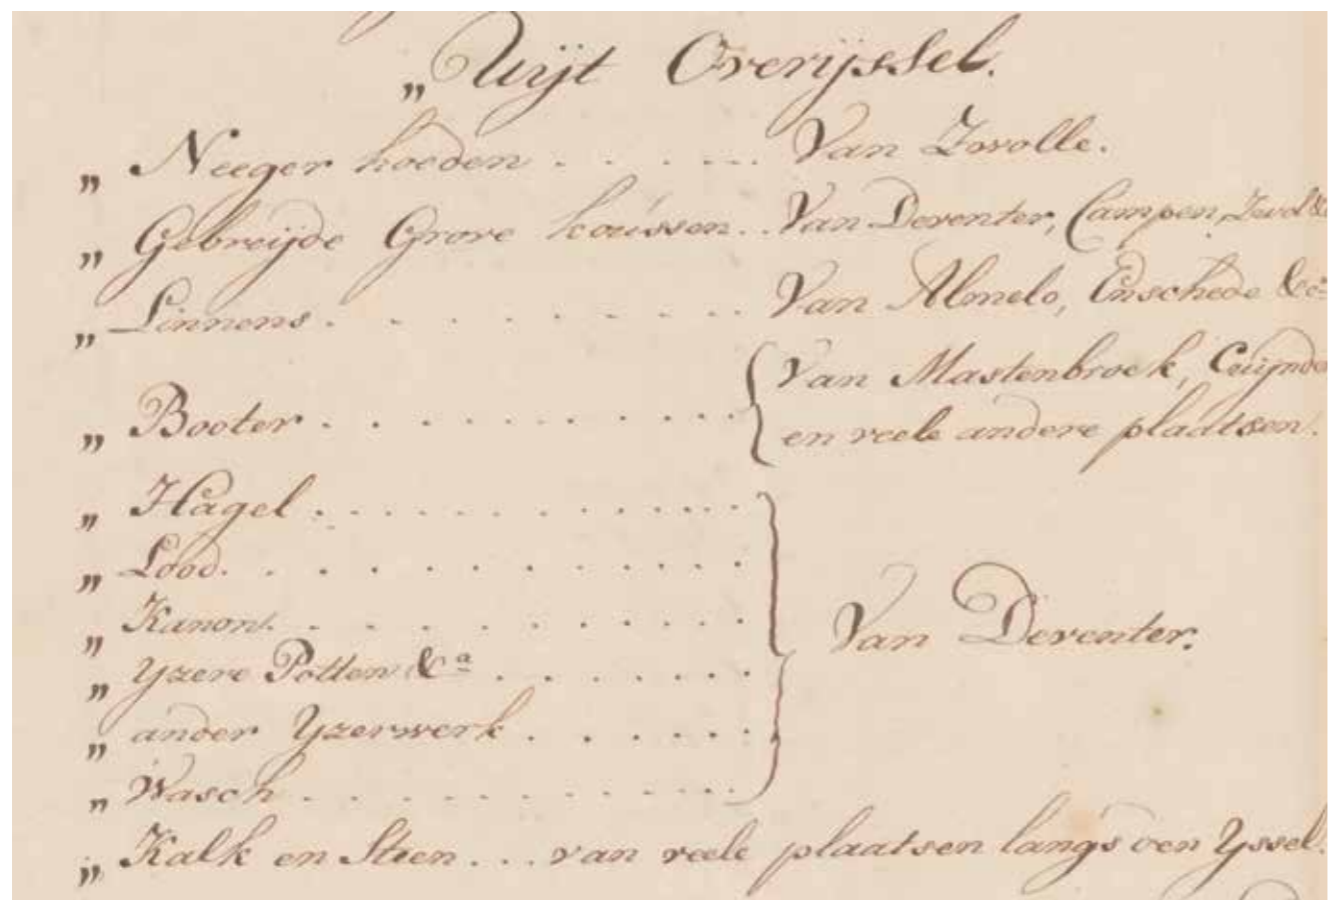 „ Uijt Overijssel.
„ Neeger hoeden . . . . . . Van Zwolle.
„ Gebreijde Grove koussen .. Van Deventer, Campen, Zwolle
„ Linnens . . . . . . . . Van Almelo, Enschede &ca
„ Booter . . . . . . . . . . { Van Mastenbroek, Cuijnder
en veele andere plaatsen.
„ Hagel . . . . . . . . . . . .
„ Lood . . . . . . . . . . . .
„ Kanon . . . . . . . . . . .
Van Deventer.
„ Yzere Potten &a . . . . . . .
„ ander Yzerwerk . . . . . . .
„ Wasch . . . . . . . . . . . .
„ Kalk en Steen . . . van veele plaatsen langs den Yssel.